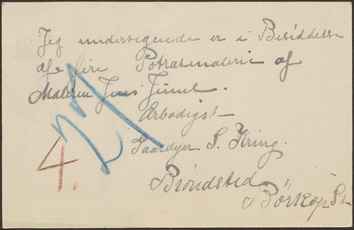 Jeg undertegnede er i Besiddelse
af fire Potrætmaleri af
Maleren Jens Juuel.
Ærbødigst
Gaardejer S. Kring.
Brøndsted
Børkop St
4.